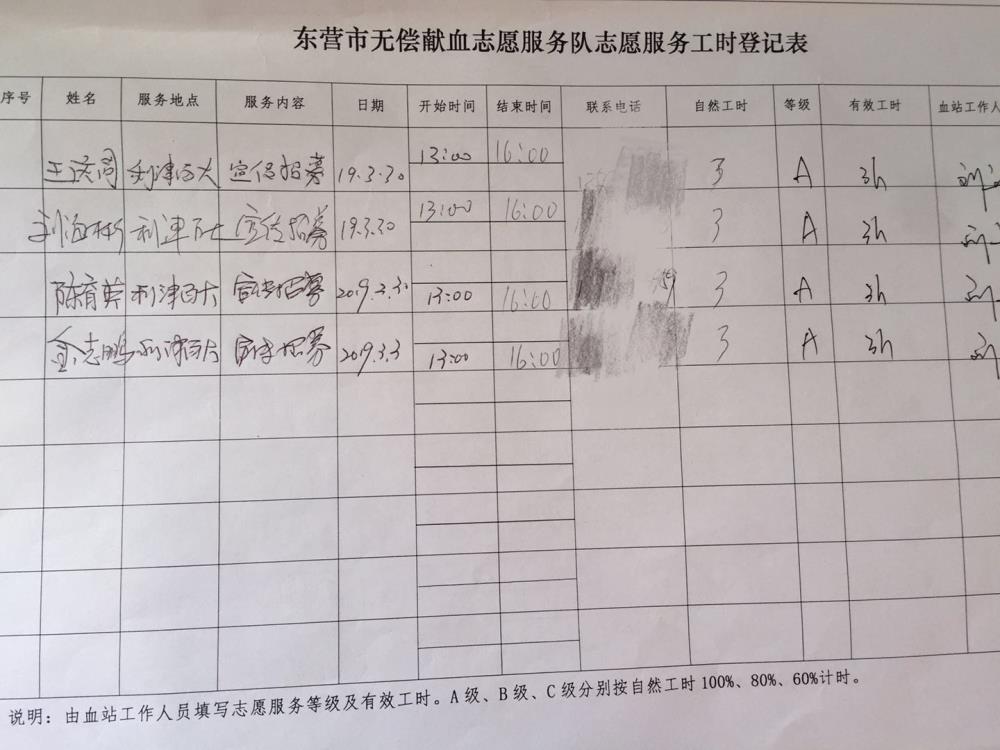 东营市无偿献血志愿服务队志愿服务工时登记表
序号 姓名 服务地点 服务内容 日期 开始时间 结束时间 联系电话 自然工时 等级 有效工时 血站工作人
利津百大 宣传招募 19.3.30 13:00 16:00 3 A 3h 刘
刘海彬 利津百大 宣传招募 19.3.30 13:00 16:00 3 A 3h 刘
陈育英 利津百大 宣传招募 2019.3.30 13:00 16:00 3 A 3h 刘
金志鹏 利津百大 宣传招募 2019.3.3 13:00 16:00 3 A 3h 刘
说明：由血站工作人员填写志愿服务等级及有效工时。A级、B级、C级分别按自然工时100%、80%、60%计时。